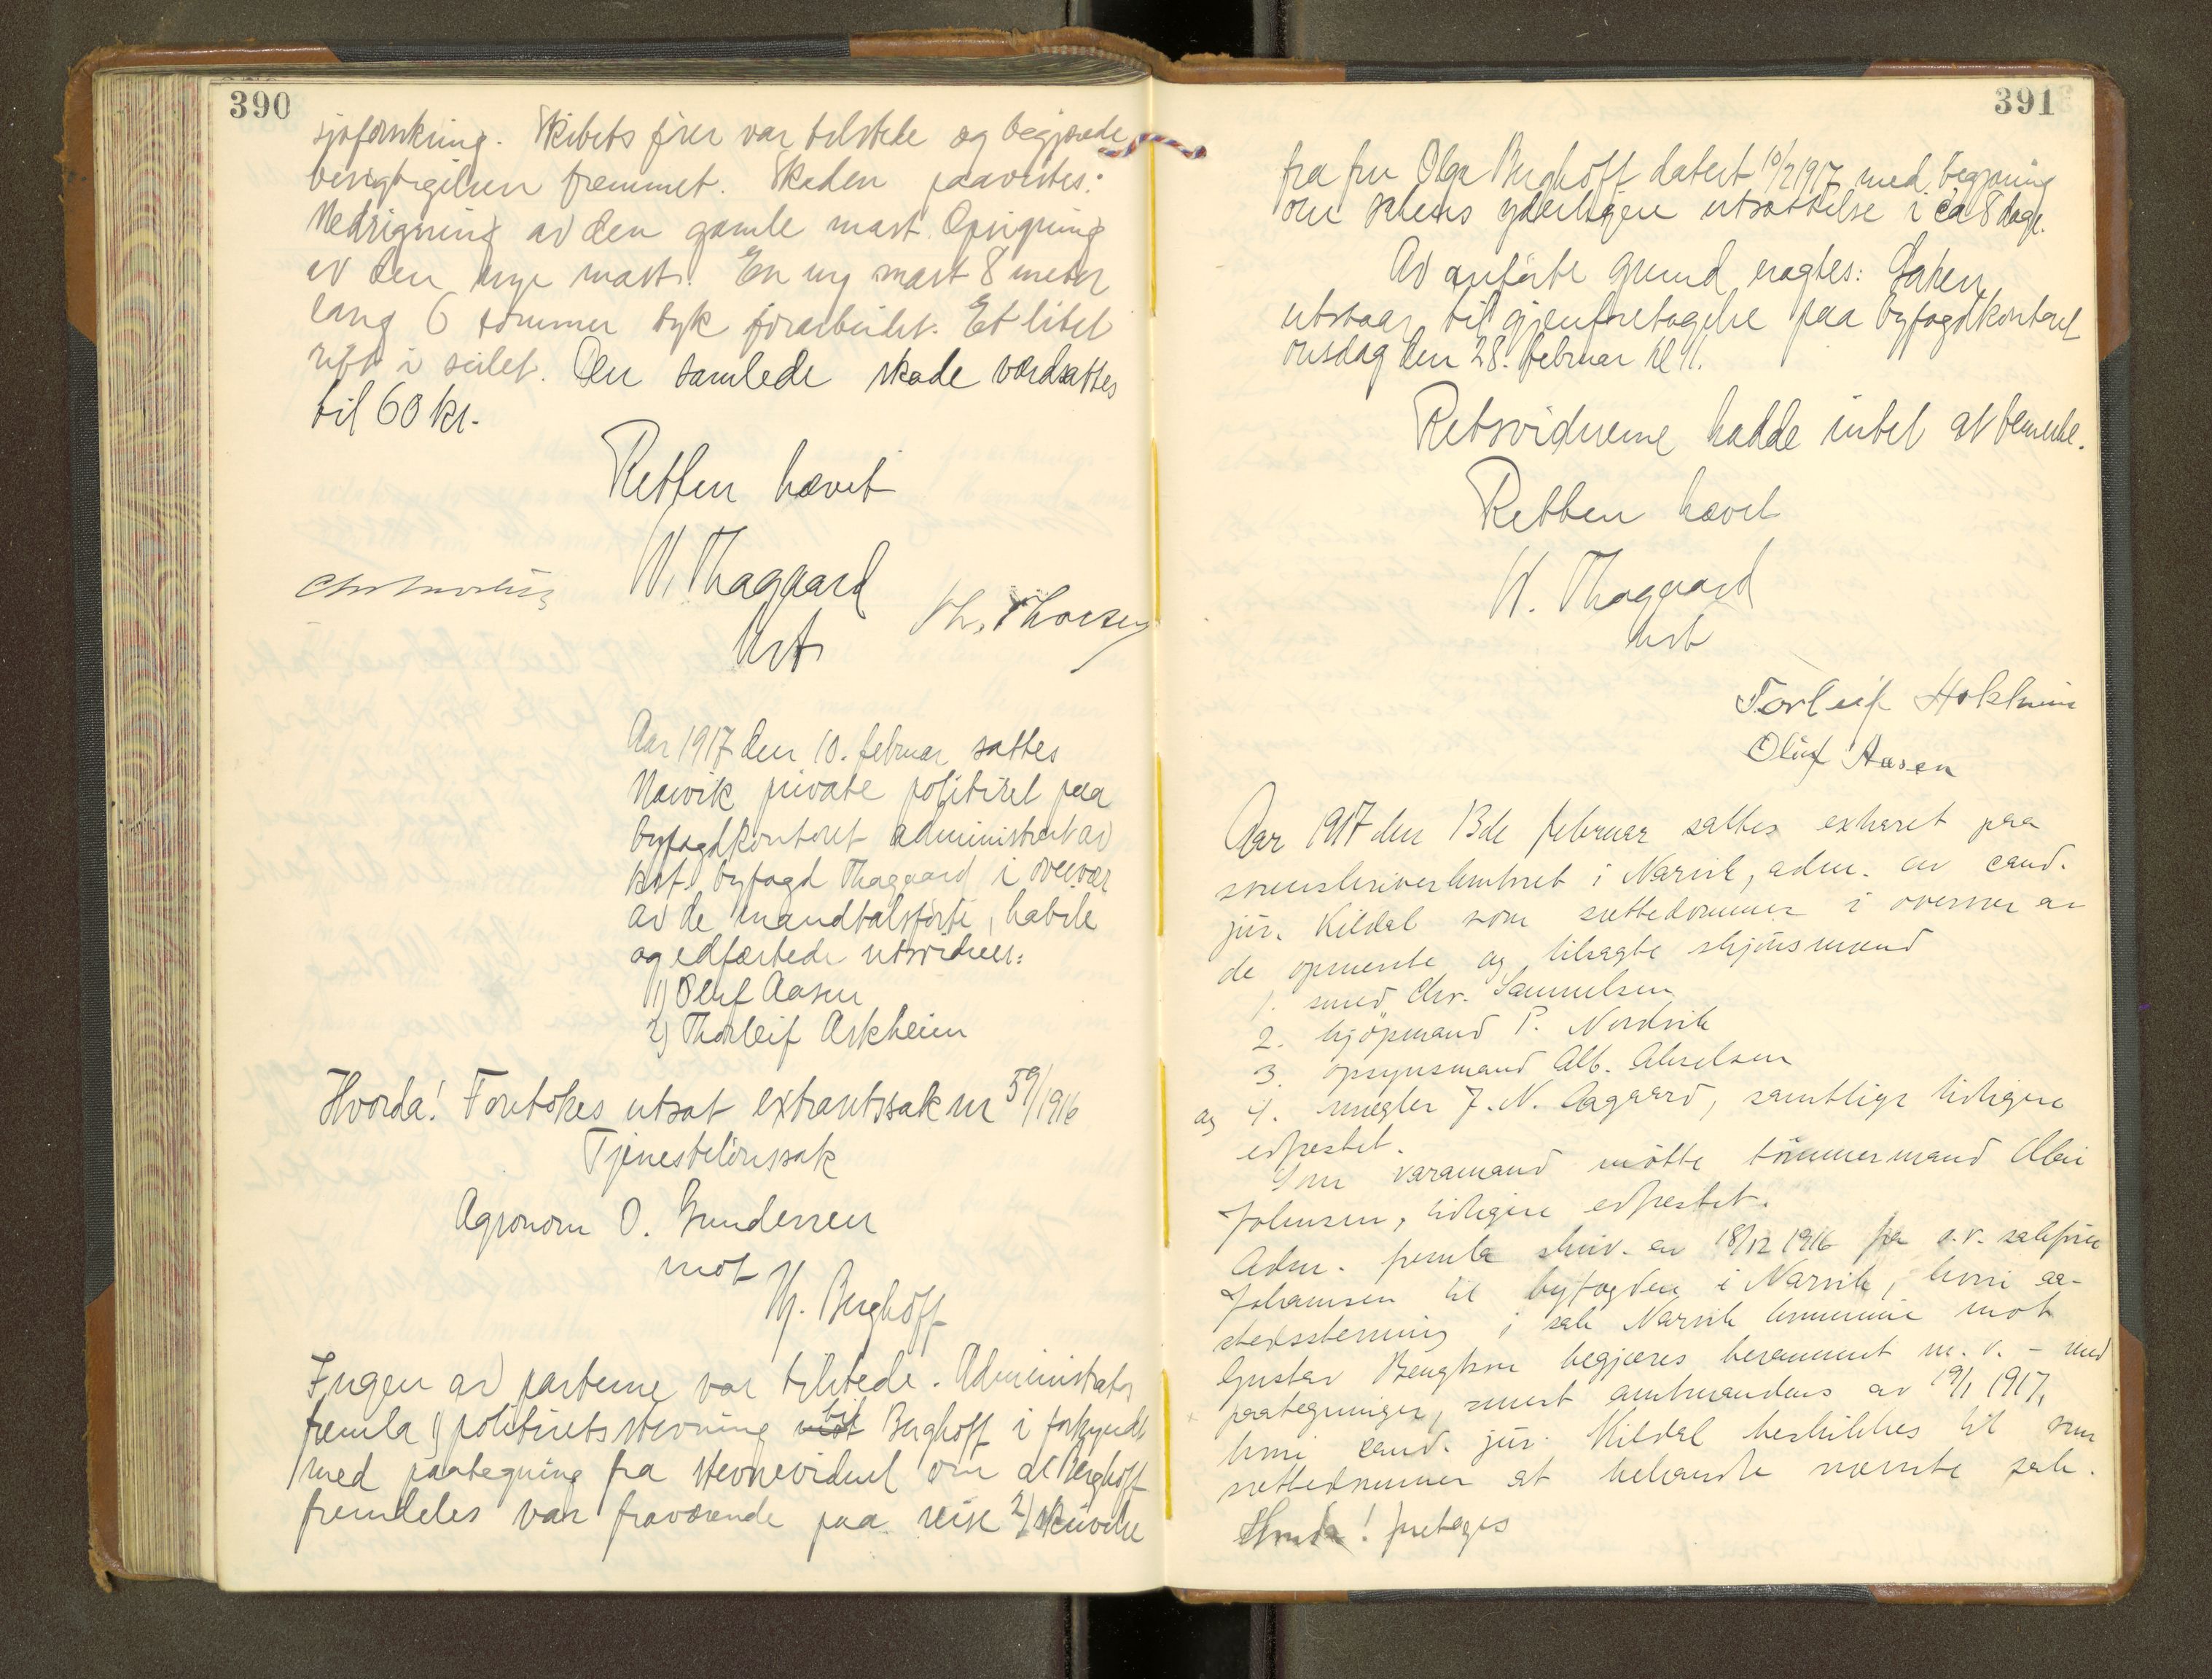 390
sjøforsikring. Skibets fører var tilstede og begjærede
besigtigelsen fremmet. Skaden paavistes:
Nedrigning av den gamle mast. Oprigning
av den nye mast. En ny mast 8 meter
lang 6 tommer tyk forarbeidet. Et litet
rift i seilet. Den samlede skade værdsattes
til 60 kr.
Retten hævet
W. Thagaard
kst.
Th. Thorsen
Aar 1917 den 10. februar sattes
Narvik private politiret paa
byfogdkontoret administrert av
kst. byfogd Thagaard i overvær
av de mandtalsførte, habile
og edfæstede retsvidner:
1) Oluf Aasen
2) Thorleif Askheim
Hvorda! Foretokes utsat extraretssak nr 59/1916
Tjenestelønssak
Agronom O. Gundersen
mot
Th. Berghoff
Ingen av parterne var tilstede. Administrator
fremla 1) politiretsstevning mot til Berghoff i forkyndt
med paategning fra stevnevidnet om at Berghoff
fremdeles var fraværende paa reise 2) skrivelse
391
fra fru Olga Berghoff datert 10/2 1917 med begjæring
om sakens yderligere utsættelse i ca 8 dage.
Av anførte grund eragtes: Saken
utstaar til gjenforetagelse paa byfogdkontoret
onsdag den 28. februar kl 11.
Retsvidnerne hadde intet at bemerke.
Retten hævet
W. Thagaard
kst
Torleif Askheim
Oluf Aasen
Aar 1917 den 13de februar sattes extraret paa
sorenskriverkontoret i Narvik, adm. av cand.
jur. Kildal som settedommer i overvær av
de opnævnte og tilsagte skjønsmænd
1. smed Chr. Samuelsen
2. kjøpmand P. Nordvik
3. opsynsmand Alb. Akselsen
og 4. mægler J. N. Aagaard, samtlige tidligere
edfæstet.
Som varamand møtte tømmermand
Johnsen, tidligere edfæstet.
Adm. fremla skriv. av 18/12 1916 fra o.r. sakfører
Johansen til byfogden i Narvik, hvori aa-
stedsstevning i sak Narvik kommune mot
Gustav Bengtson begjæres berammet m. v. - med
paategninger, senest amtmandens av 19/1 1917,
hvori cand. jur. Kildal beskikkes til som
settedommer at behandle nævnte sak.
Hvorda! foretages